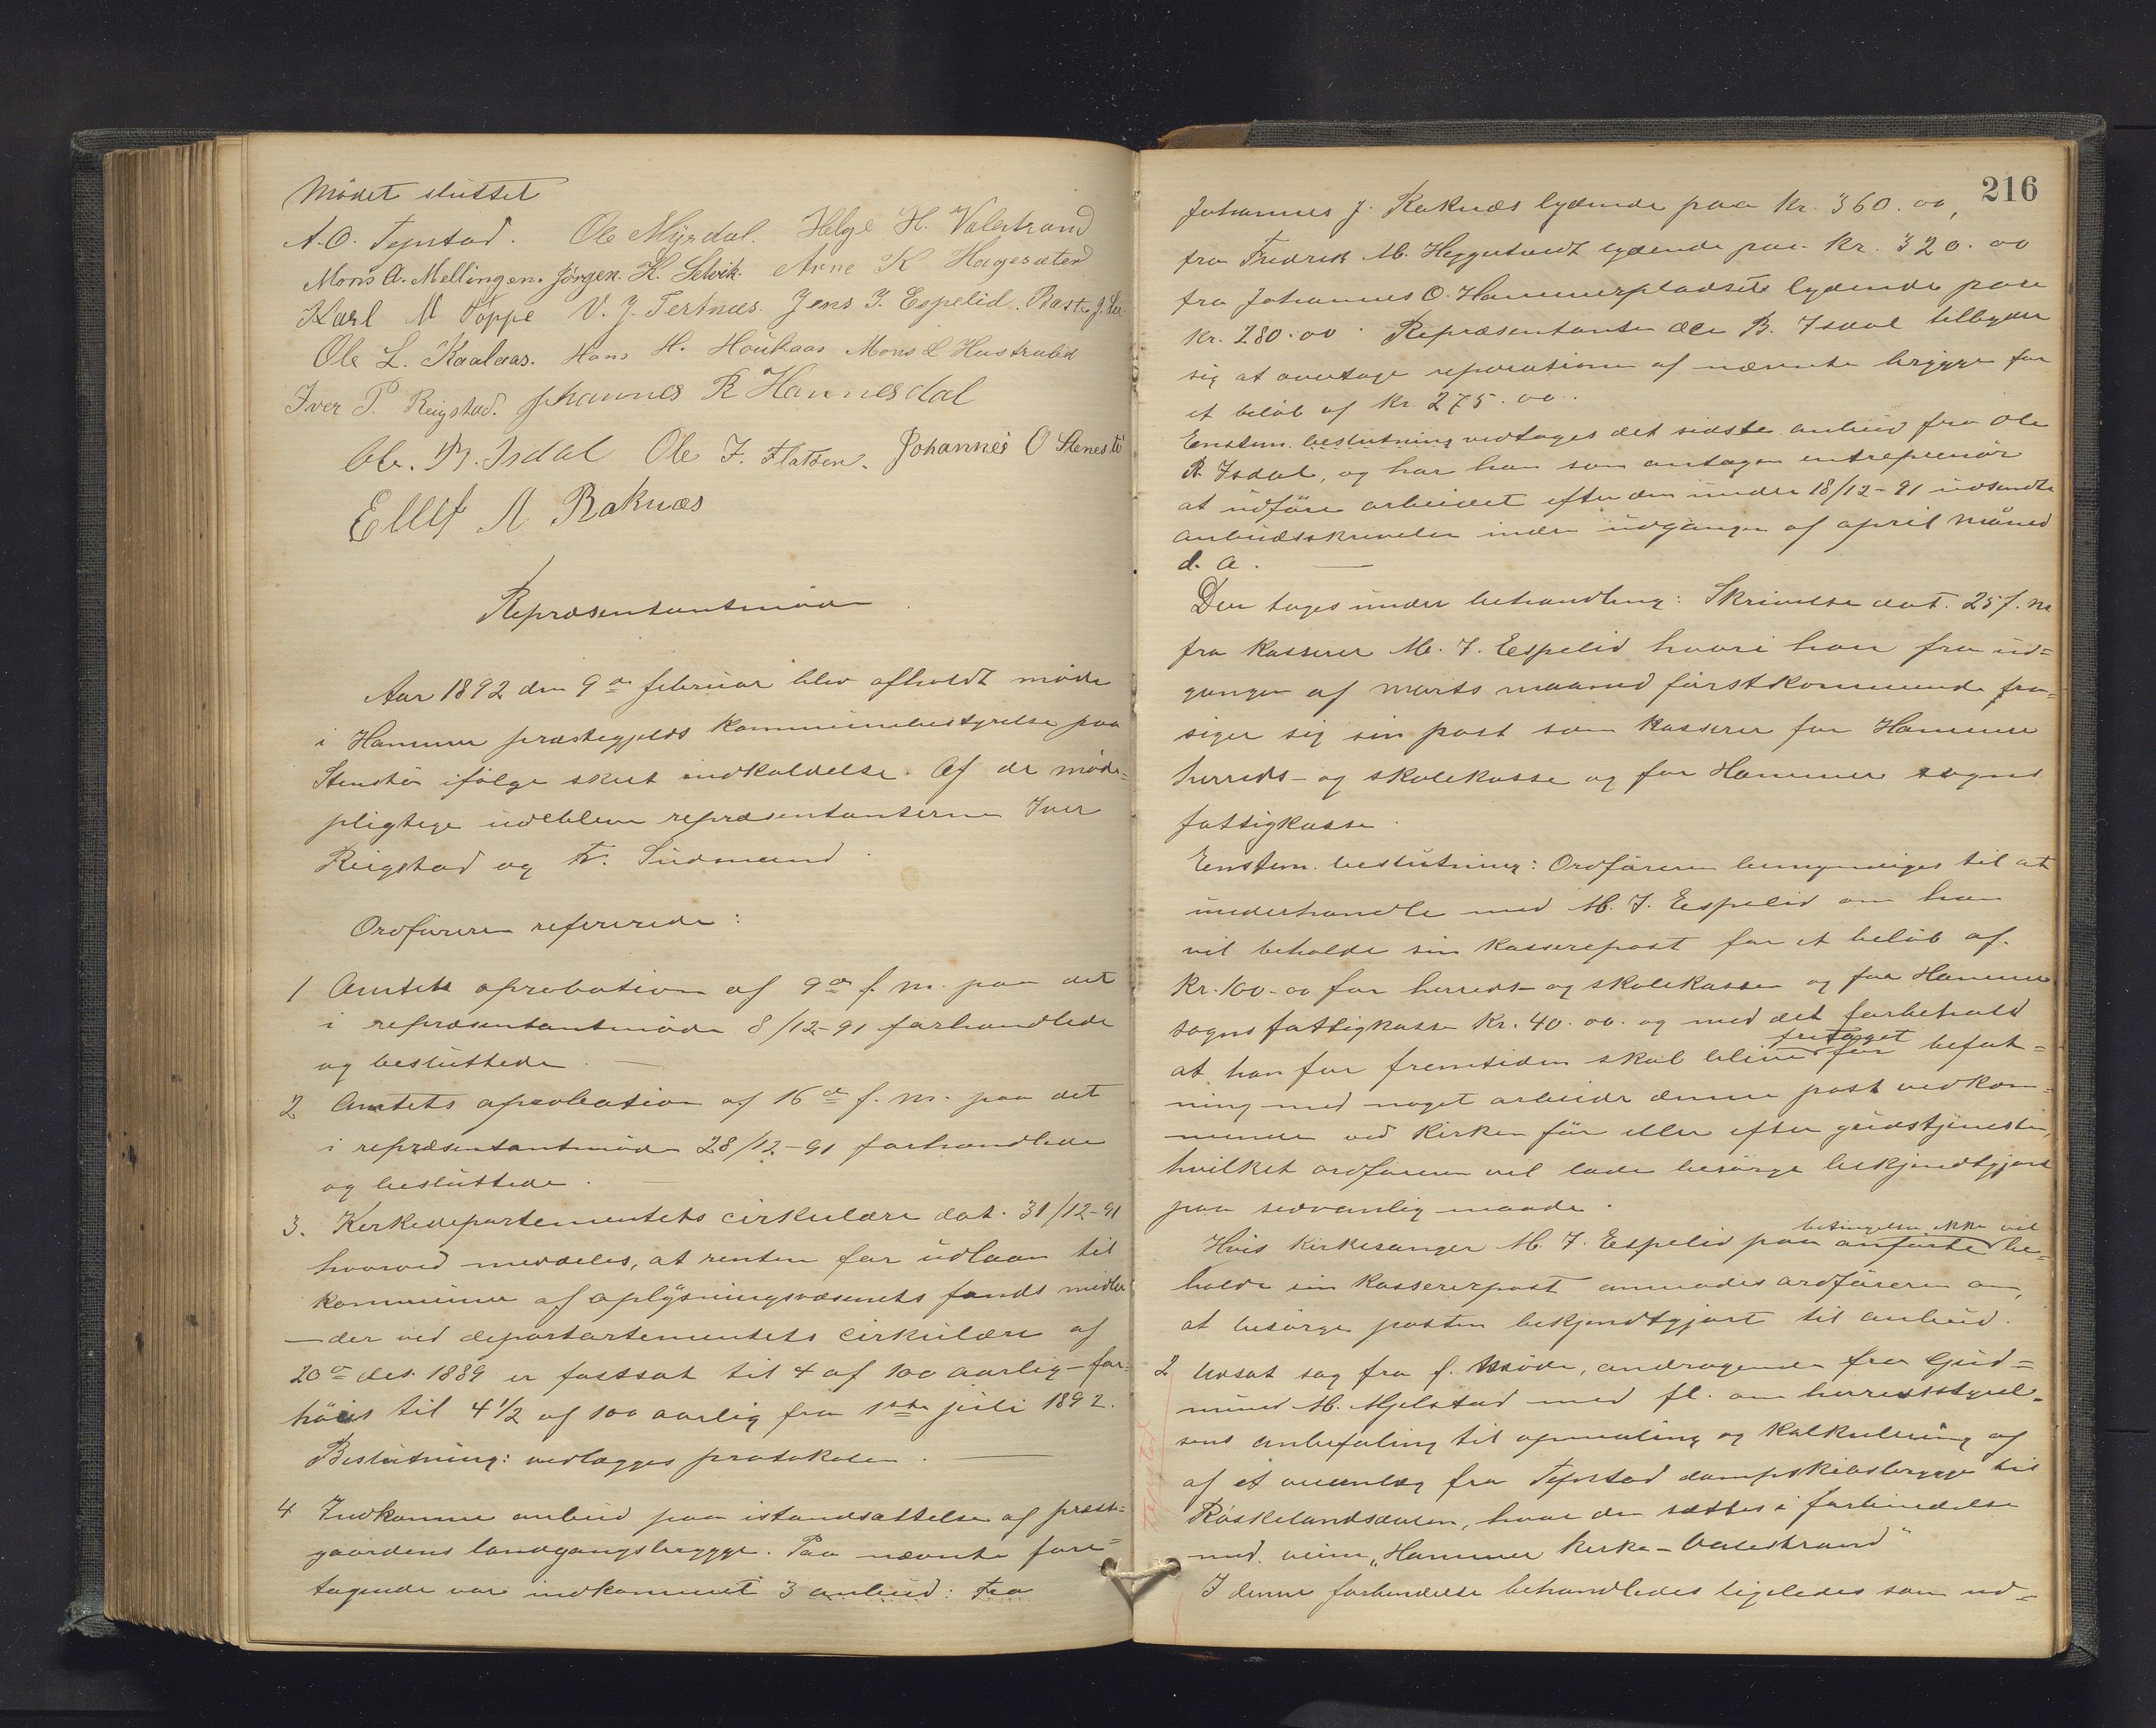 Mödet sluttet
A. O. Tepstad. Ole Myrdal. Helge H. Valestrand
Mons A. Mellingen. Jörgen. K. Selvik. Arne K Hagesæter
Karl M Toppe V. J. Tertnæs. Jens J. Espelid. Baste J.
Ole L. Kaalaas. Hans H. Houkaas Mons L Hustrulid
Iver P. Reigstad. Johannes R Hannesdal
Ole. B. Isdal Ole J. Flatöen. Johannes O Stenestö
Ellef A. Raknæs
Repræsentantmöde
Aar 1892 den 9de februar blev afholdt möde
i Hammer præstegjelds kommunebestyrelse paa
Stenstö ifölge skeet indkaldelse. Af de möde-
pligtige udebleve repræsentanterne Iver
Reigstad og Fr. Sudmand.
Ordföreren refererede:
1 Amtets aprobation af 9de f. m. paa det
i repræsentantmöde 8/12-91 forhandlede
og besluttede. —
2 Amtets aprobation af 16de f. m. paa det
i repræsentantmöde 28/12-91 forhandlede
og besluttede. —
3. Kirkedepartementets cirkulære dat. 31/12-91
hvorved meddeles, at renten for udlaan til
kommuner af oplysningsvæsenets fonds midler
— der ved departartementets cirkulære af
20de des. 1889 er fastsat til 4 af 100 aarlig — for-
höies til 4 1/2 af 100 aarlig fra 1ste juli 1892.
Beslutning: vedlægges protokolen. —
4 Indkomne anbud paa istandsættelse af præste-
gaardens landgangsbrygge. Paa nævnte fore-
tagende var indkommet 3 anbud: fra
216
Johannes J. Raknæs lydende paa kr. 360.00,
fra Fredrik M. Heggertvedt lydende paa kr. 320.00
fra Johannes O. Hammerpladset lydende paa
kr. 280.00. Repræsentanten Ole B. Isdal tilbyder
sig at overtage reparationen af nævnte brygge for
et belöb af kr. 275.00.
Enstem. beslutning vedtages det sidste anbud fra Ole
B. Isdal, og har han som antagen entreprenör
at udföre arbeidet efter den under 18/12-91 udsendte
anbudsskrivelse inden udgangen af april måned
d. a. —
Der toges under behandling: Skrivelse dat. 25 f. m
fra kasserer M. J. Espelid hvori han fra ud-
gangen af marts maaned förstkommende fra-
siger sig sin post som kasserer for Hammer
herreds- og skolekasse og for Hammer sogns
fattigkasse.
Enstem. beslutning: Ordföreren bemyndiges til at
underhandle med M. J. Espelid om han
vil beholde sin kassererpost for et belöb af
kr. 100.00 for herreds- og skolekassen og for Hammer
sogns fattigkasse kr. 40.00. og med det forbehold
at han for fremtiden skal blive fritaget for befat-
ning med noget arbeide denne post vedkom-
mende ved kirken för eller efter gudstjenesten,
hvilket ordföreren vil lade besörge bekjendtgjort
paa sedvanlig maade.
Hvis kirkesanger M. J. Espelid paa anförte betingelser ikke vil be-
holde sin kassererpost anmodes ordföreren om,
at besörge posten bekjendtgjort til anbud.
2 Udsat sag fra f. möde, andragende fra Gud-
mund M. Mjelstad med fl. om herredsstyrel-
sens anbefaling til opmaaling og kalkulering af
af et veianlæg fra Tepstad dampskibsbrygge til
Röskelandsdalen, hvor den sættes i forbindelse
med veien „Hammer kirke - Valestrand"
I denne forbindelse behandledes ligeledes som ud-